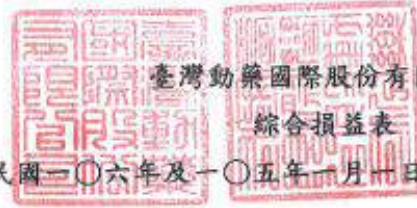 臺灣動藥國際股份有
綜合損益表
民國一〇六年及一〇五年一月一日